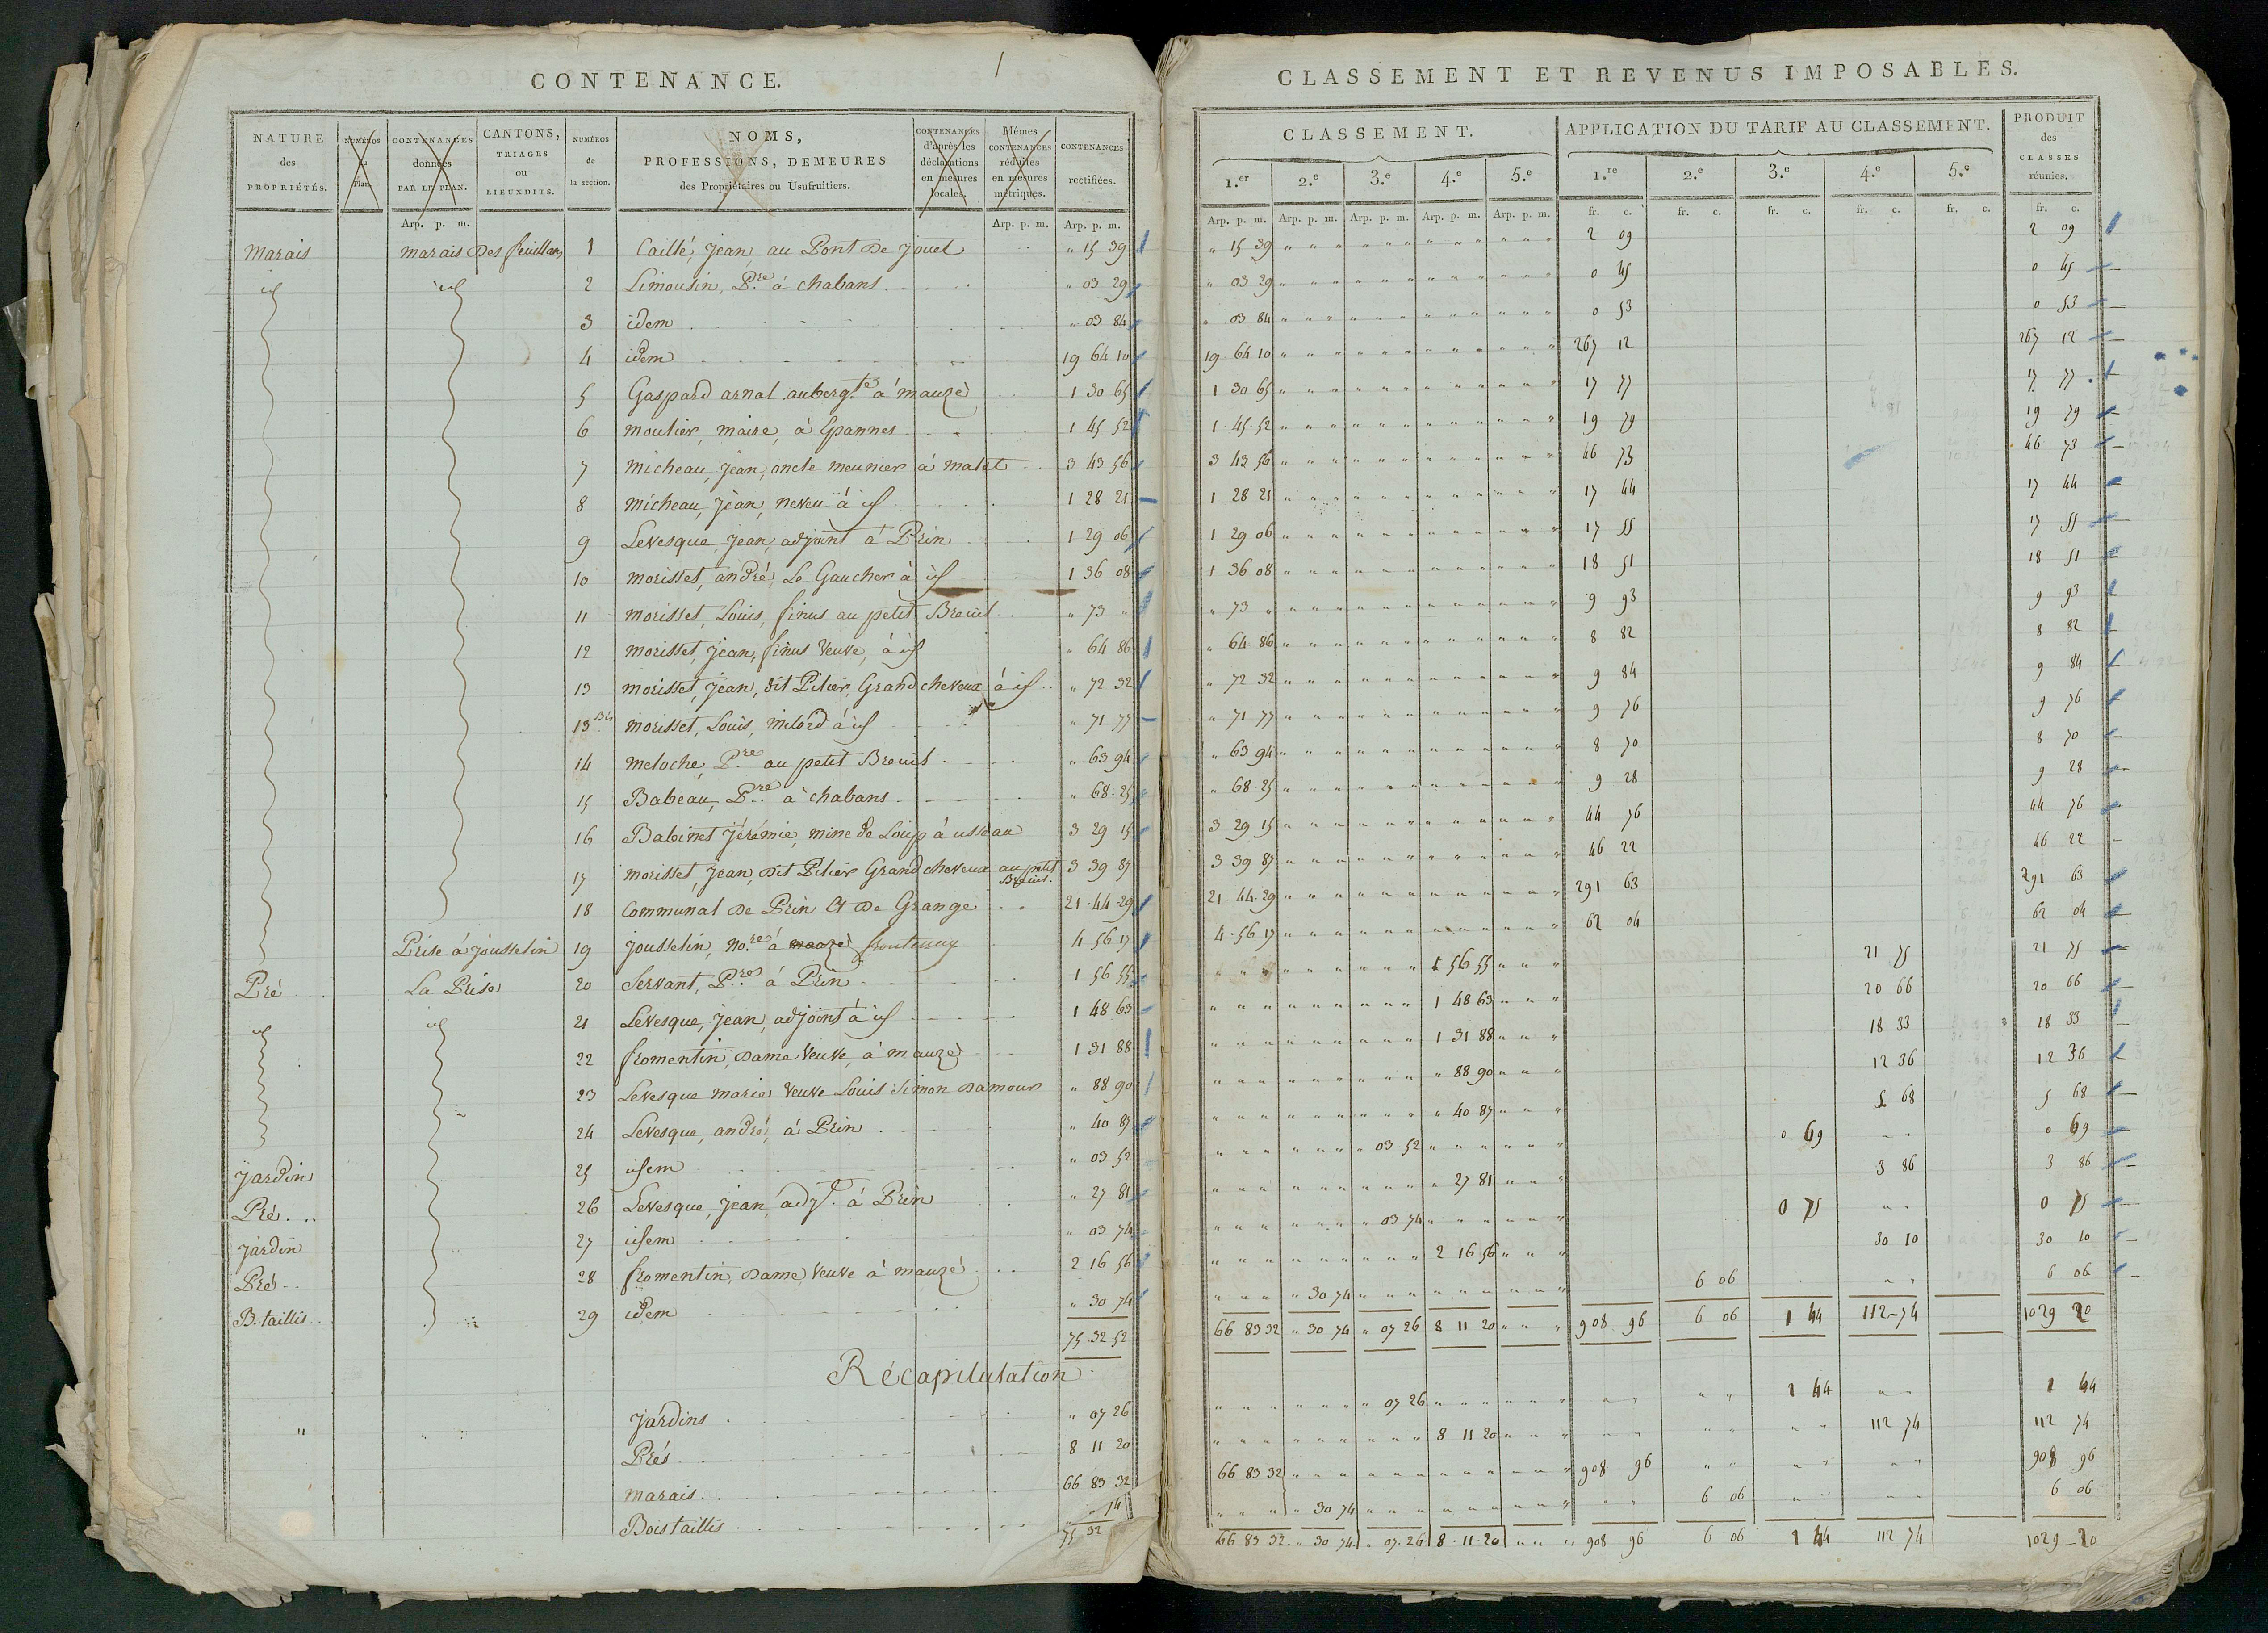 1
CONTENANCE.
NATURE des PROPRIÉTÉS.
NUMÉROS du Plan.
CONTENANCES données PAR LE PLAN.
CANTONS, TRIAGES ou LIEUXDITS.
NUMÉROS de la section.
NOMS, PROFESSIONS, DEMEURES des Propriétaires ou Usufruitiers.
CONTENANCES d'après les déclarations en mesures locales.
Mêmes CONTENANCES réduites en mesures métriques.
CONTENANCES rectifiées.
Arp. p. m. Arp. p. m. Arp. p. m.
Marais marais des feuillans 1 Caillé, Jean, au Pont de Jouet " 15 39
id id 2 Limousin, P.re à chabans " 03 29
3 idem " 03 84
4 idem 19 64 10
5 Gaspard arnal auberg.te à mauzé 1 30 65
6 moulier, maire, à Epannes 1 45 52
7 micheau, Jean, oncle meunier à malet 3 43 56
8 micheau, Jean, neveu à id 1 28 21
9 Levesque, Jean, adjoint à Prin 1 29 06
10 morisset, andré, Le Gaucher à id 1 36 08
11 morisset, Louis, finus au petit Breuil " 73 "
12 morisset, Jean, finus veuve, à id " 64 86
13 morisset, Jean, dit Pilier, Grand cheveux à id " 72 32
13 Bis morisset, Louis, milord à id " 71 77
14 meloche, P.re au petit Breuil " 63 94
15 Babeau, P.re à chabans " 68 25
16 Babinet Jérémie, mine de Loup à usseau 3 29 15
17 morisset, Jean, dit Pilier Grand cheveux au petit Breuil. 3 39 87
18 Communal de Prin et de Grange 21 44 29
Prise à jousselin 19 jousselin, no.re à mauzé frontenay 4 56 17
Pré La Prise 20 Servant, P.re à Prin 1 56 55
id id 21 Levesque, Jean, adjoint à id 1 48 63
22 fromentin, Dame veuve, à mauzé 1 31 88
23 Levesque marie veuve Louis Simon Damour " 88 90
24 Levesque, andré, à Prin " 40 87
Jardin 25 idem " 03 52
Pré 26 Levesque, Jean, adj.t à Prin " 27 81
Jardin 27 idem " 03 74
Pré 28 fromentin, Dame, veuve à mauzé 2 16 56
B. taillis 29 idem " 30 74
75 32 52
Récapitulation
Jardins " 07 26
" Prés 8 11 20
marais 66 83 32
Bois taillis " " 74
75 32
CLASSEMENT ET REVENUS IMPOSABLES.
CLASSEMENT. APPLICATION DU TARIF AU CLASSEMENT. PRODUIT des CLASSES réunies.
1.er 2.e 3.e 4.e 5.e 1.re 2.e 3.e 4.e 5.e
Arp. p. m. Arp. p. m. Arp. p. m. Arp. p. m. Arp. p. m. fr. c. fr. c. fr. c. fr. c. fr. c. fr. c.
" 15 39 2 09 2 09
" 03 29 0 45 0 45
" 03 84 0 53 0 53
19 64 10 267 12 267 12
1 30 65 17 77 17 77
1 45 52 19 79 19 79
3 43 56 46 73 46 73
1 28 21 17 44 17 44
1 29 06 17 55 17 55
1 36 08 18 51 18 51
" 73 " 9 93 9 93
" 64 86 8 82 8 82
" 72 32 9 84 9 84
" 71 77 9 76 9 76
" 63 94 8 70 8 70
" 68 25 9 28 9 28
3 29 15 44 76 44 76
3 39 87 46 22 46 22
21 44 29 291 63 291 63
4 56 17 62 04 62 04
1 56 55 21 75 21 75
1 48 63 20 66 20 66
1 31 88 18 33 18 33
" 88 90 12 36 12 36
" 40 87 5 68 5 68
" 03 52 0 69 0 69
" 27 81 3 86 3 86
" 03 74 0 75 0 75
2 16 56 30 10 30 10
" 30 74 6 06 6 06
66 83 32 " 30 74 " 07 26 8 11 20 " " " 908 96 6 06 1 44 112 74 1029 20
" 07 26 1 44 1 44
8 11 20 112 74 112 74
66 83 32 908 96 908 96
" 30 74 6 06 6 06
66 83 32 " 30 74 " 07 26 8 11 20 " " " 908 96 6 06 1 44 112 74 1029 20